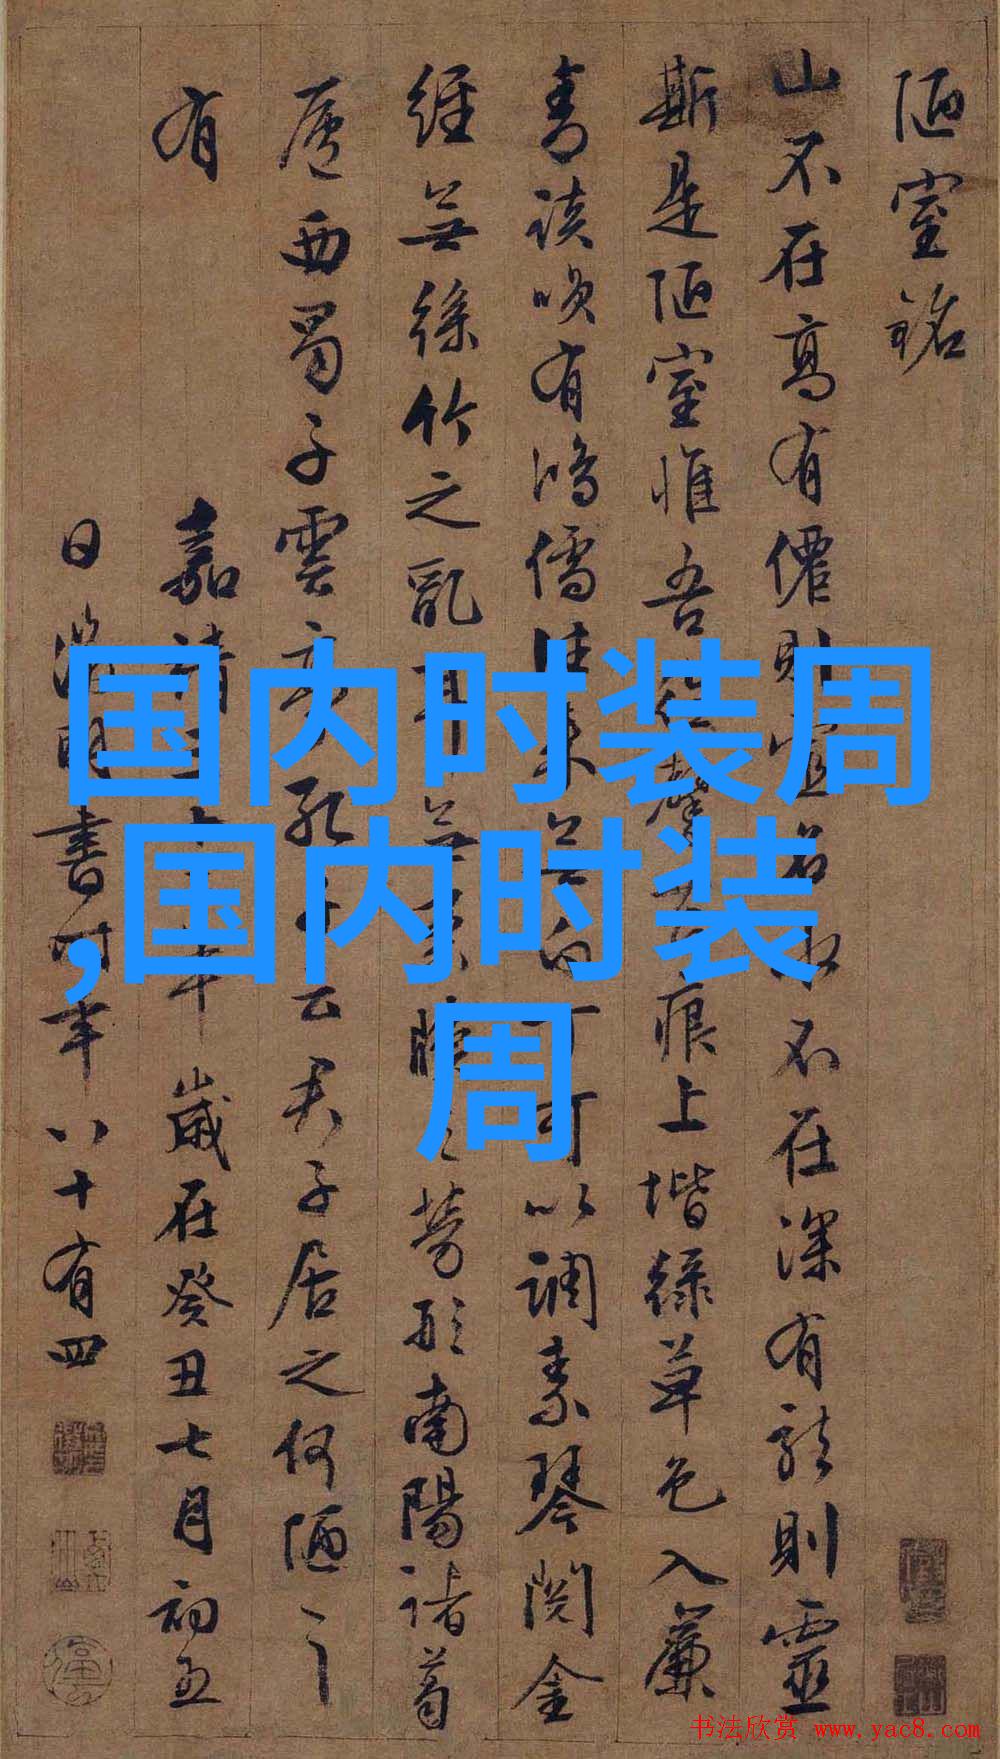 陋室銘
山不在高有僊則名水不在深有龍則靈
斯是陋室惟吾德馨苔痕上堦綠草色入簾
青談咲有鴻儒往来無白丁可以調素琴閱金
經無絲竹之亂耳無案牘之勞形南陽諸葛
廬西蜀子雲亭孔子云君子居之何陋之
有
嘉靖三十二年歲在癸丑七月初五
日徵明書時年八十有四
国内时装周
,国内时装
周
书法欣赏 www.yac8.com